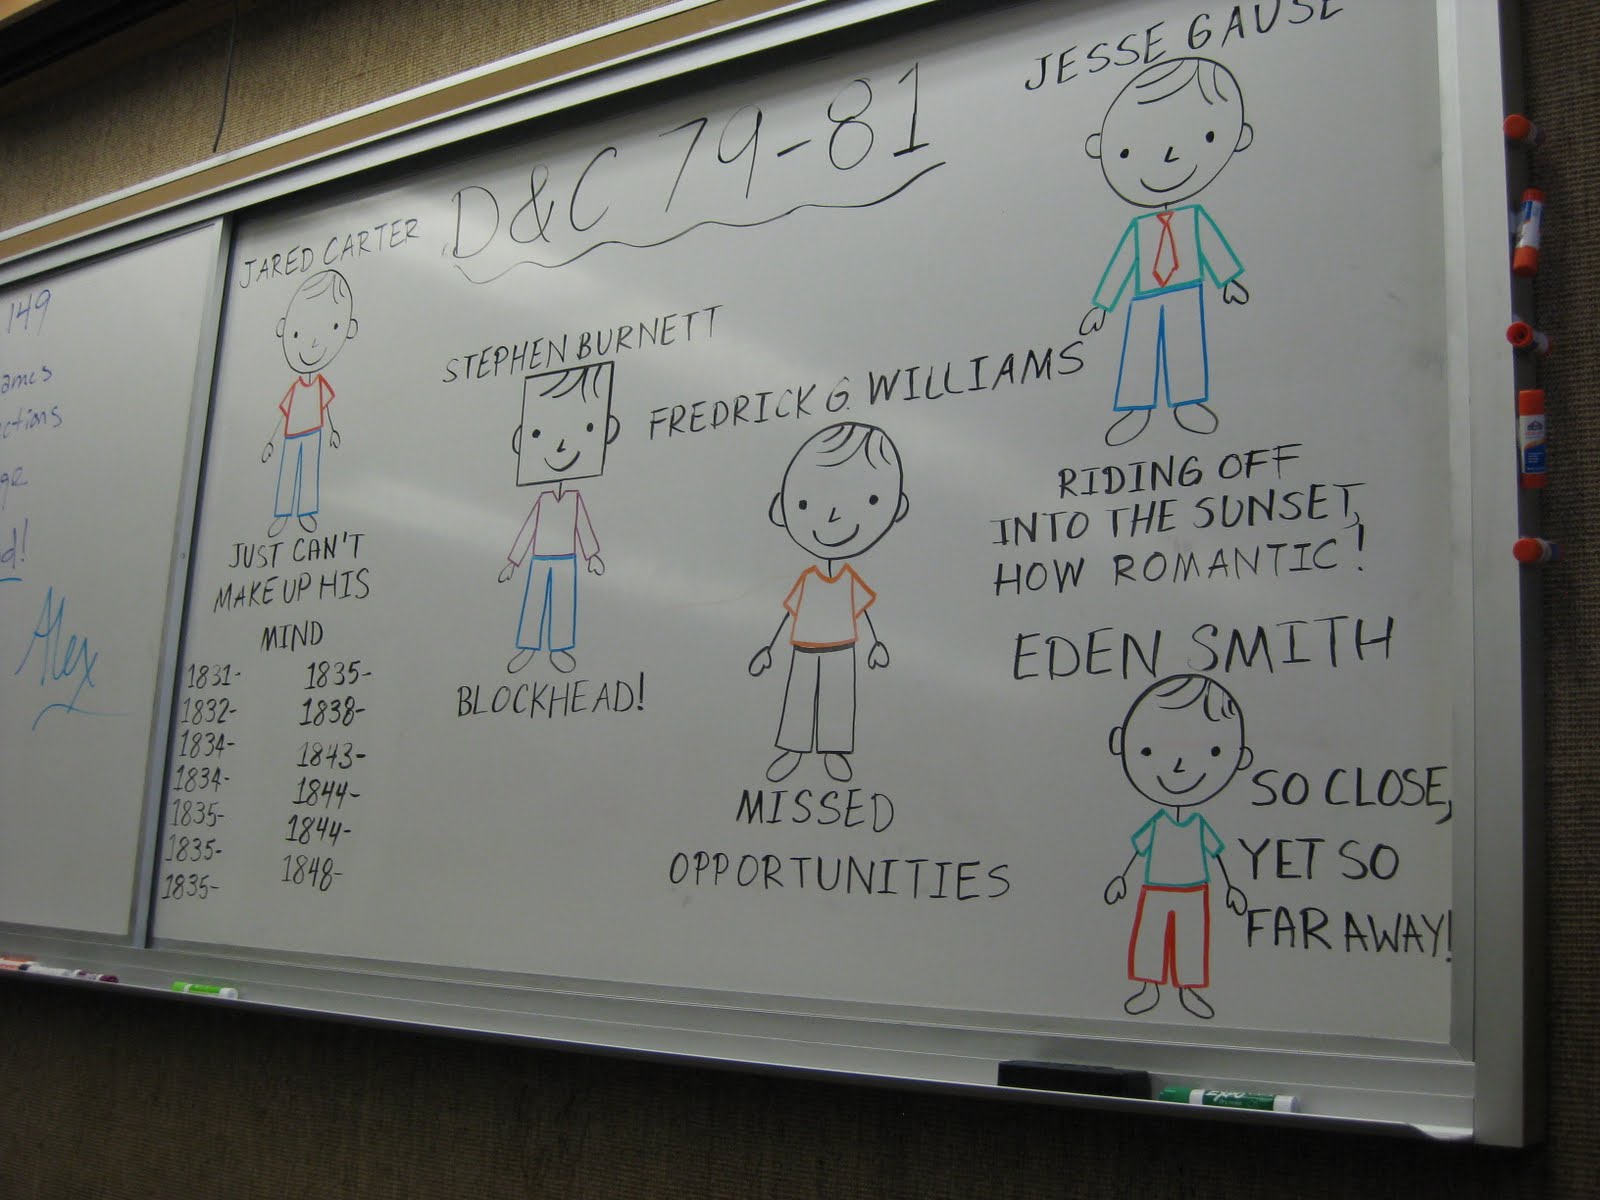 149
Alex
D&C 79-81
JARED CARTER
JUST CAN'T
MAKE UP HIS
MIND
1831-
1832-
1834-
1834-
1835-
1835-
1835-
1835-
1838-
1843-
1844-
1844-
1848-
STEPHEN BURNETT
BLOCKHEAD!
FREDRICK G. WILLIAMS
MISSED
OPPORTUNITIES
JESSE GAUSE
RIDING OFF
INTO THE SUNSET,
HOW ROMANTIC!
EDEN SMITH
SO CLOSE,
YET SO
FAR AWAY!
EXPO